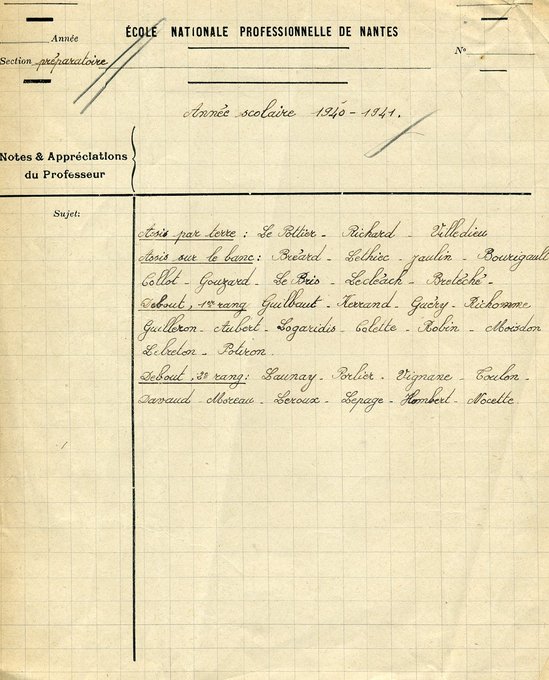 ÉCOLE NATIONALE PROFESSIONNELLE DE NANTES
Année
Section préparatoire
N°
Année scolaire 1940-1941.
Notes & Appréciations
du Professeur
Sujet:
Assis par terre : Le Pottier - Richard - Villedieu
Assis sur le banc : Bréard - Lethiec - Jaulin - Bourigault
Collot - Gouzard - Le Bris - Lecléach - Bretéché -
Debout, 1er rang Guilbaut - Kerrand Guéry - Richomme
Guilleron - Aubert - Logaridis - Colette - Robin - Moisdon
Lebreton - Potiron.
Debout, 2e rang : Launay - Porlier - Vignane - Toulon -
Davaud - Moreau - Leroux - Lepage - Hombert - Nocette